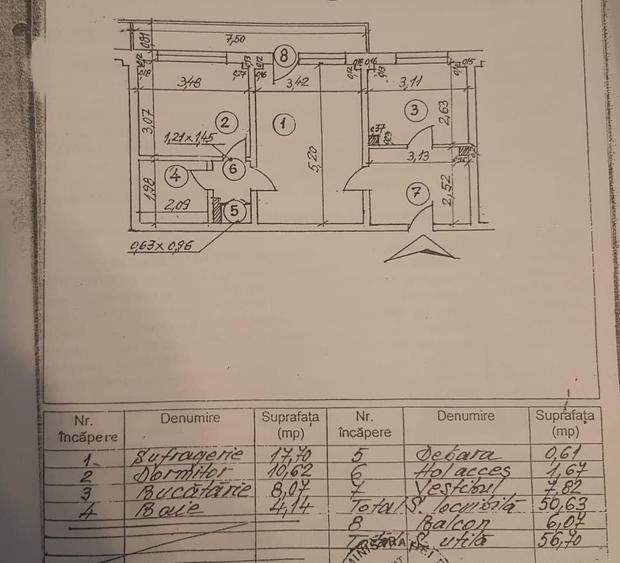 0,81
7,50
8
3,48
3,42
3,11
3,07
2
1
3
2,63
1,21x1,45
5,20
3,13
6
4
7
2,52
1,98
2,09
5
0,63x0,96
Nr. încăpere Denumire Suprafața (mp) Nr. încăpere Denumire Suprafața (mp)
1 Sufragerie 17,70 5 Debara 0,61
2 Dormitor 10,62 6 Hol acces 1,67
3 Bucătărie 8,07 7 Vestibul 7,82
4 Baie 4,14 Total S. locuibilă 50,63
8 Balcon 6,07
S. utilă 56,70